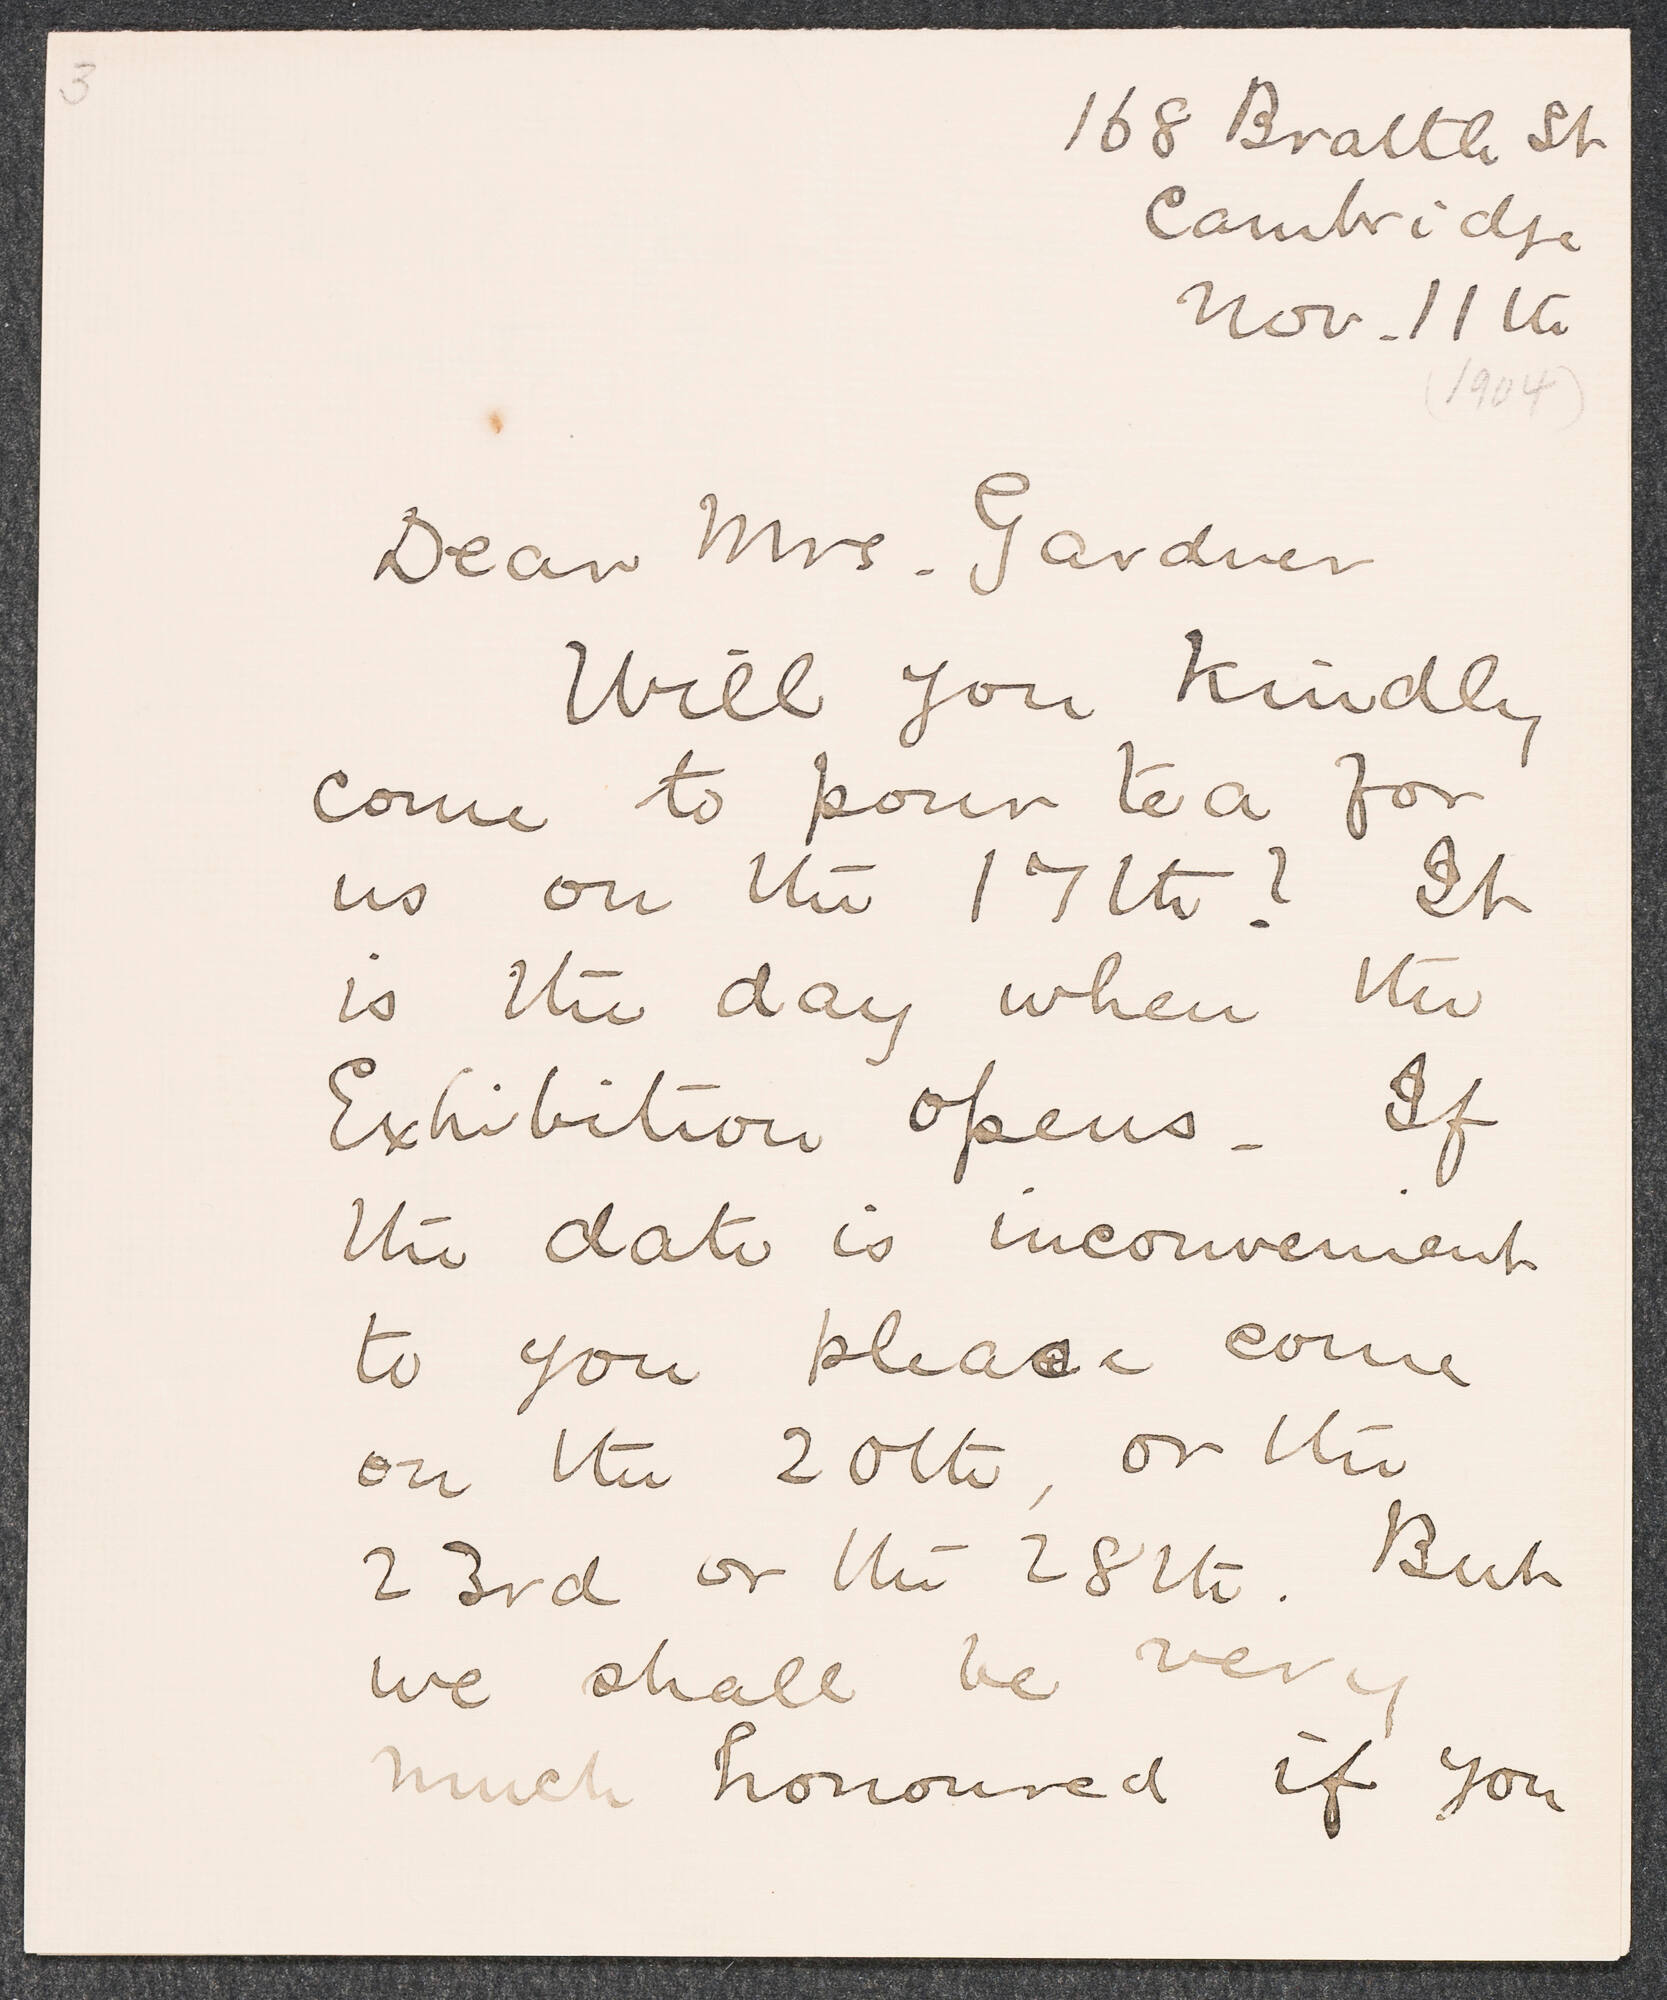 3
168 Brattle St
Cambridge
Nov. 11th
(1904)
Dear Mrs. Gardner
Will you kindly
come to pour tea for
us on the 17th? It
is the day when the
Exhibition opens. If
the date is inconvenient
to you please come
on the 20th, or the
23rd or the 28th. But
we shall be very
much honoured if you